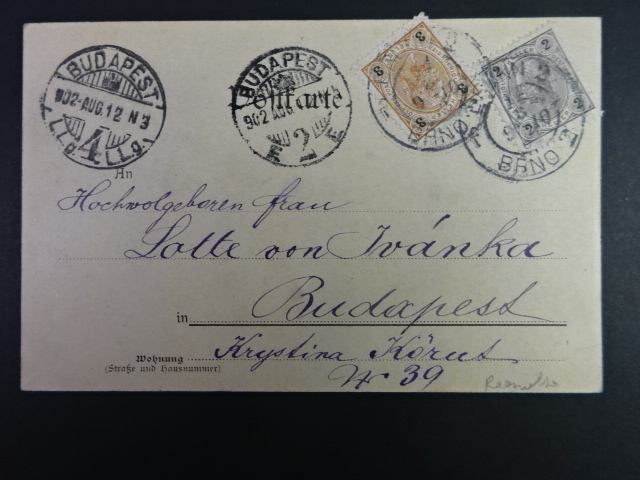 BUDAPEST
902-AUG.12 N3
4
BUDAPEST
902 AUG
2
Postkarte
3 3 3
2 2 2
BRNO
BRNO
An
Hochwolgeboren frau
Lotte von Ivánka
in Budapest
Wohnung
(Straße und Hausnummer)
Krystina Körut
Nr 39